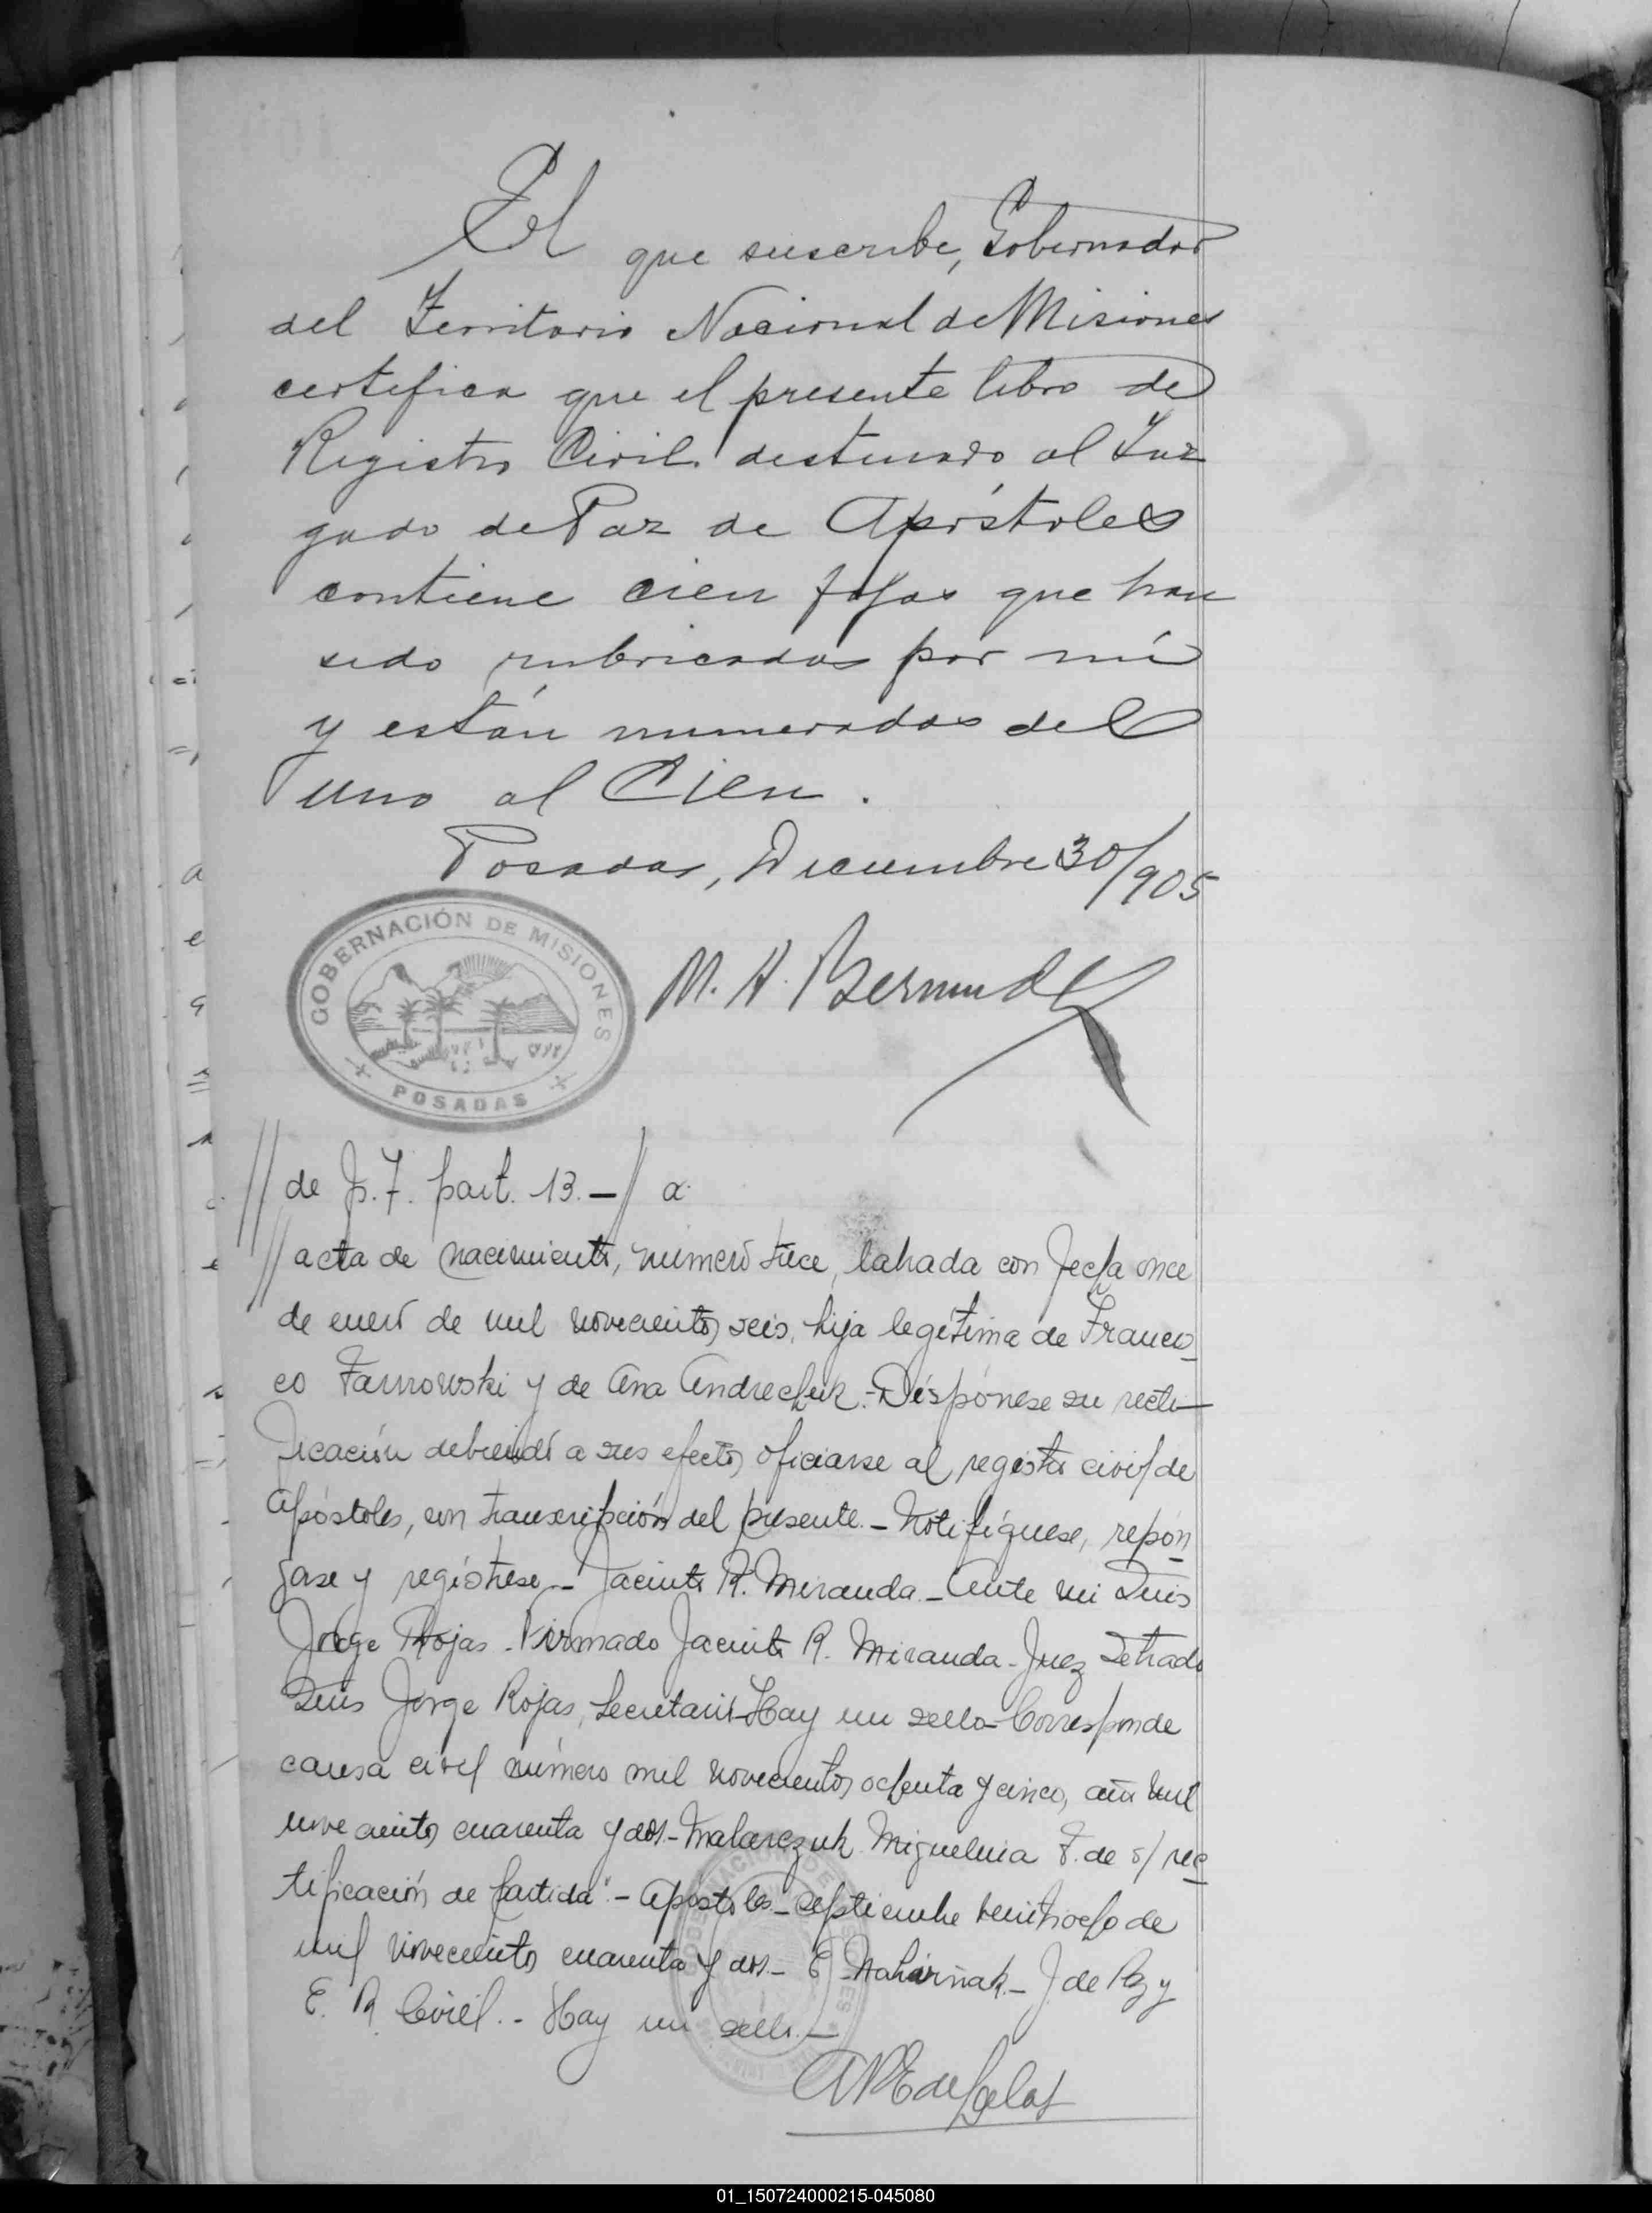 El que suscribe, Gobernador
del Territorio Nacional de Misiones
certifica que el presente libro de
Registro Civil destinado al Juz
gado de Paz de Apóstoles
contiene cien fojas que han
sido rubricadas por mí
y están numeradas del
uno al Cien.
Posadas, Diciembre 30/905
GOBERNACIÓN DE MISIONES
POSADAS
M. A. Bermudez
// de p. 7. part. 13.-// a
// acta de nacimiento, número trece, labrada con fecha once
de enero de mil novecientos seis, hija legítima de Francis_
co Tarnowski y de Ana Andrechuk.-Dispónese su recti-
ficación debiendo a sus efectos oficiarse al registro civil de
Apóstoles, con transcripción del presente.-Notifíquese, repón_
gase y regístrese.- Jacinto R. Miranda.-Ante mi Luis
Jorge Rojas.-Firmado Jacinto R. Miranda-Juez Letrado
Luis Jorge Rojas, Secretario-Hay un sello-Corresponde
causa civil número mil novecientos ochenta y cinco, año mil
novecientos cuarenta y dos.-Malarczuk Miguelina T. de s/ rec_
tificación de partida".- Apóstoles-septiembre veintiocho de
mil novecientos cuarenta y dos.- E J. de Paz y
E. R. Civil.- Hay un sello.-